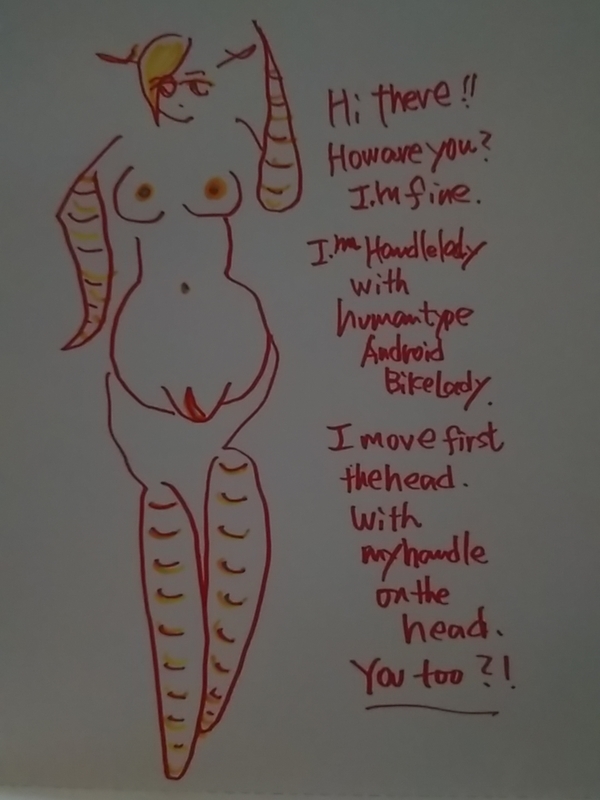 Hi there!!
How are you?
I.m fine.
I.m Handlelady
with
humantype
Android
Bikelady.
I move first
the head.
With
my handle
on the
head.
You too?!